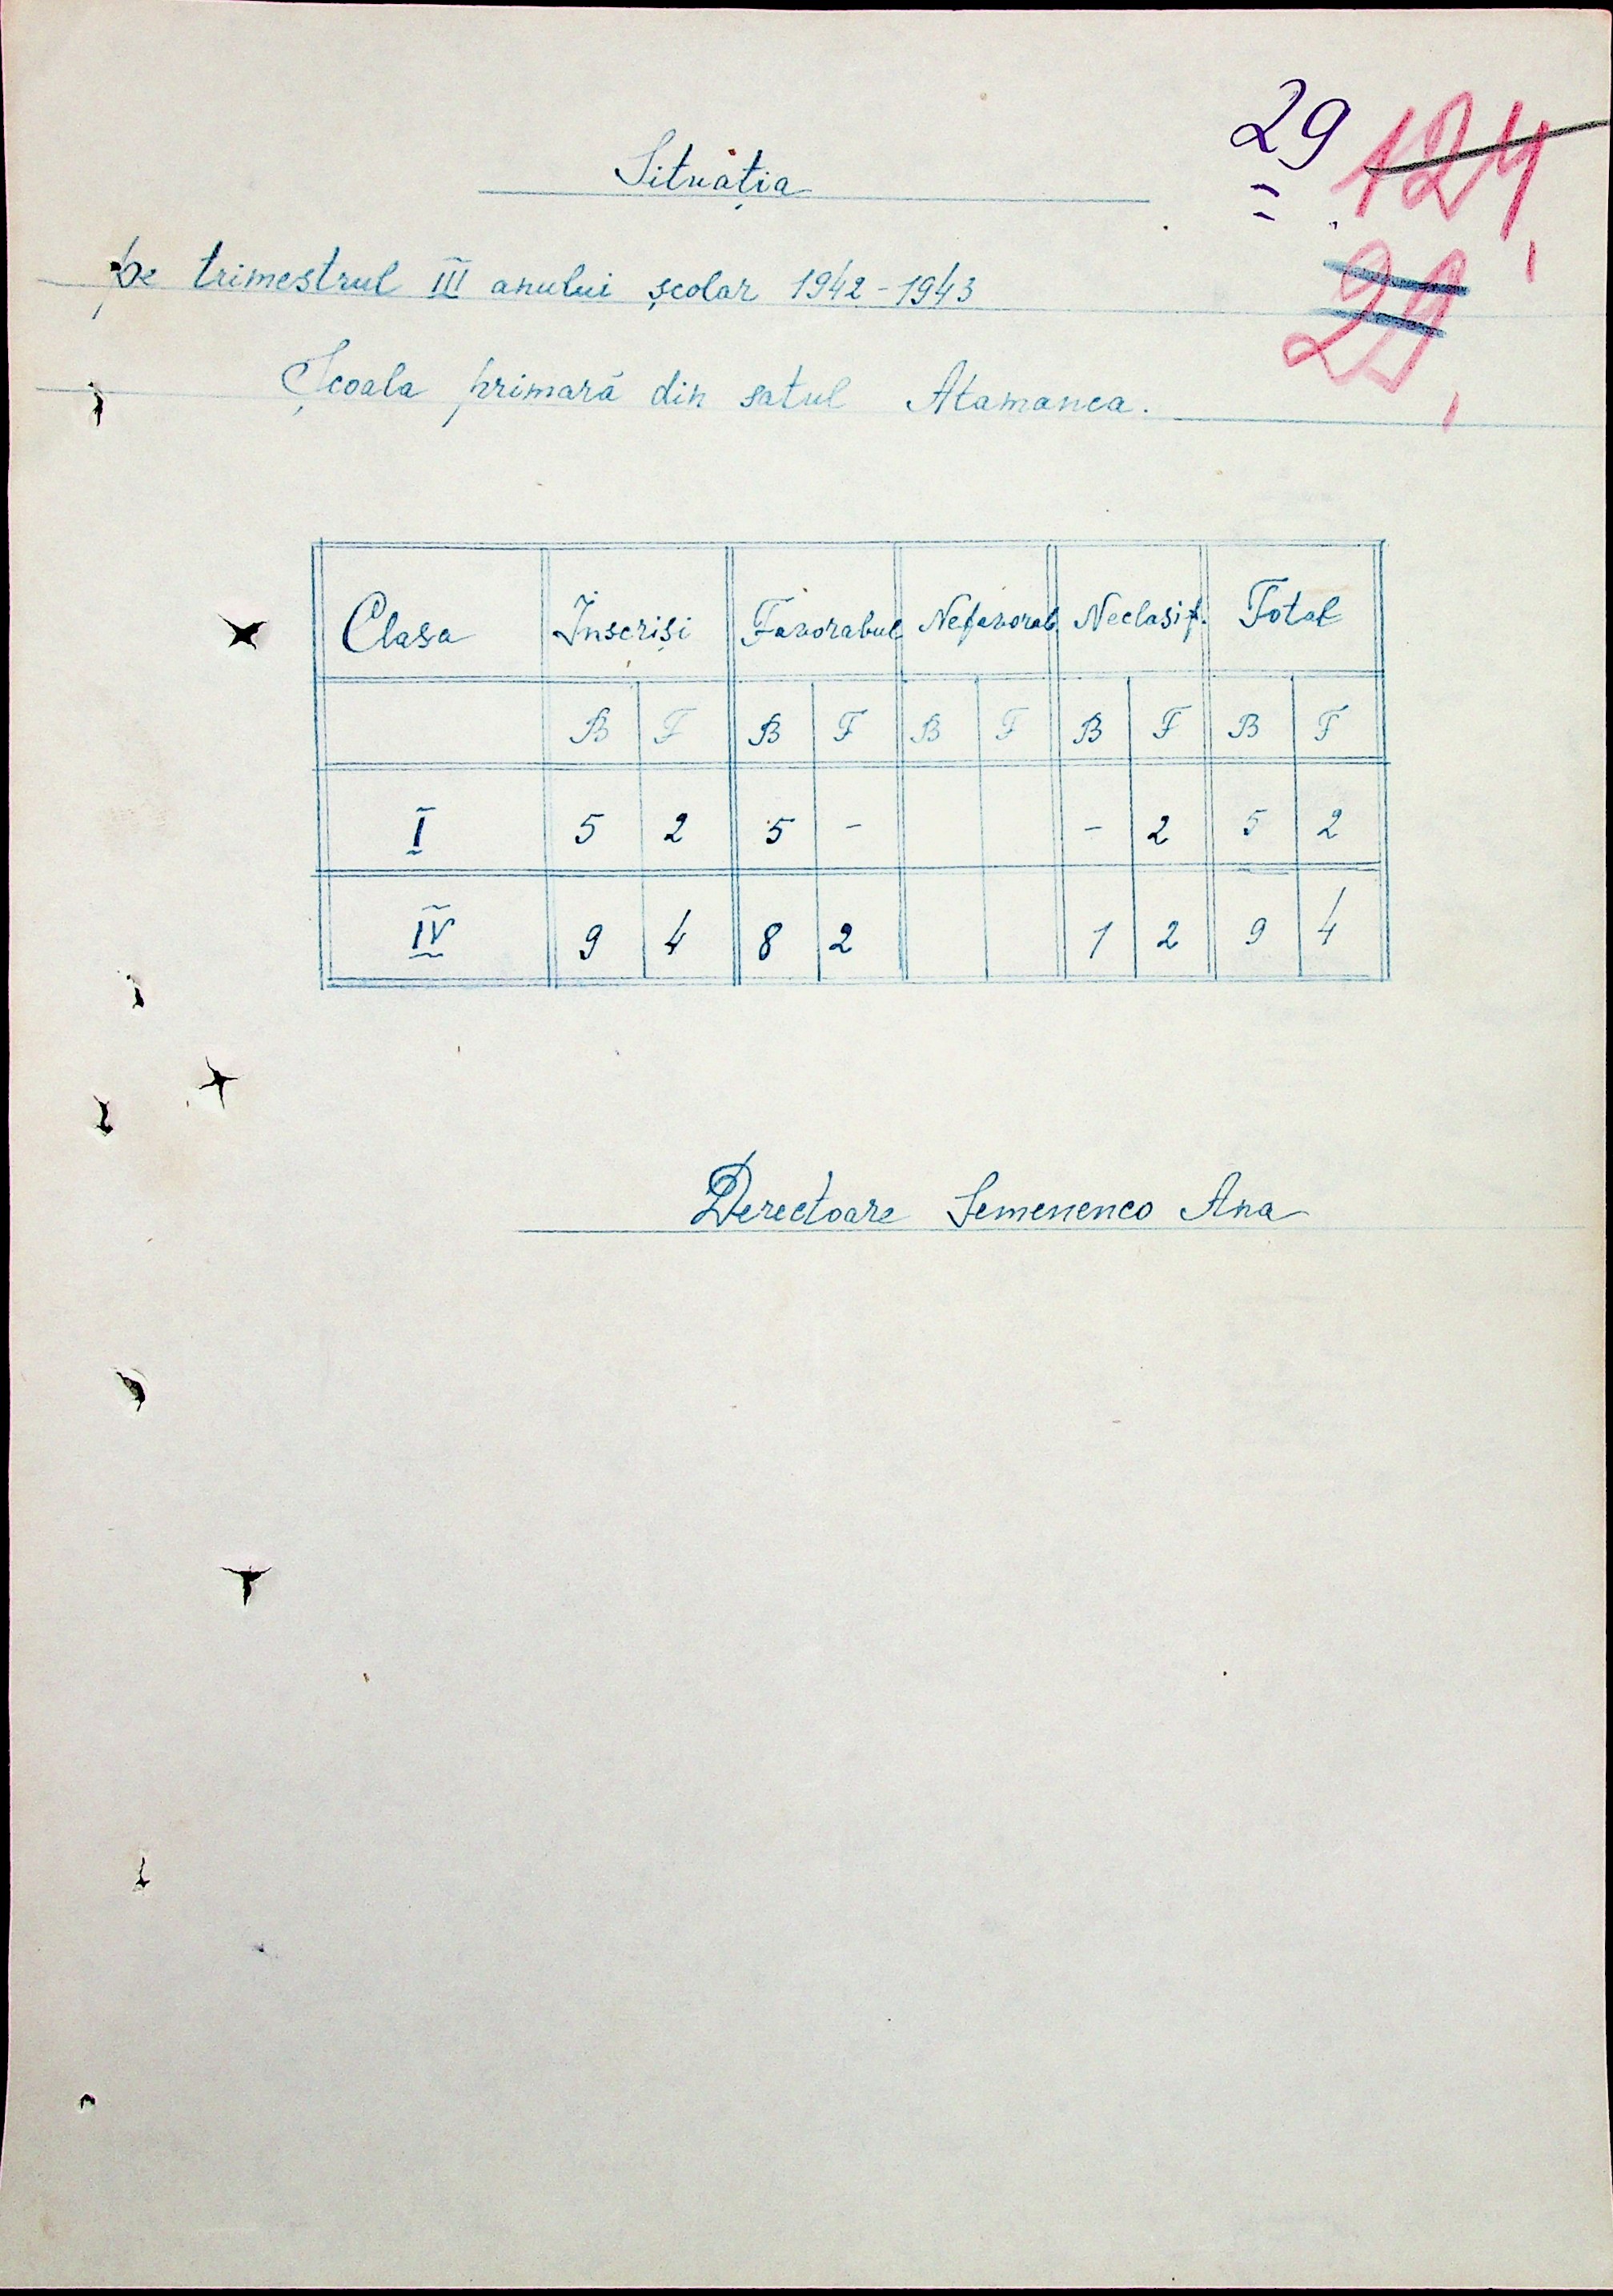 29
124
29
Situația
pe trimestrul III anului școlar 1942-1943
Școala primară din satul Atamanca.
Clasa Înscriși Favorabul Nefavorab Neclasif. Total
B F B F B F B F B F
I 5 2 5 - - 2 5 2
IV 9 4 8 2 1 2 9 4
Derectoare Semenenco Ana